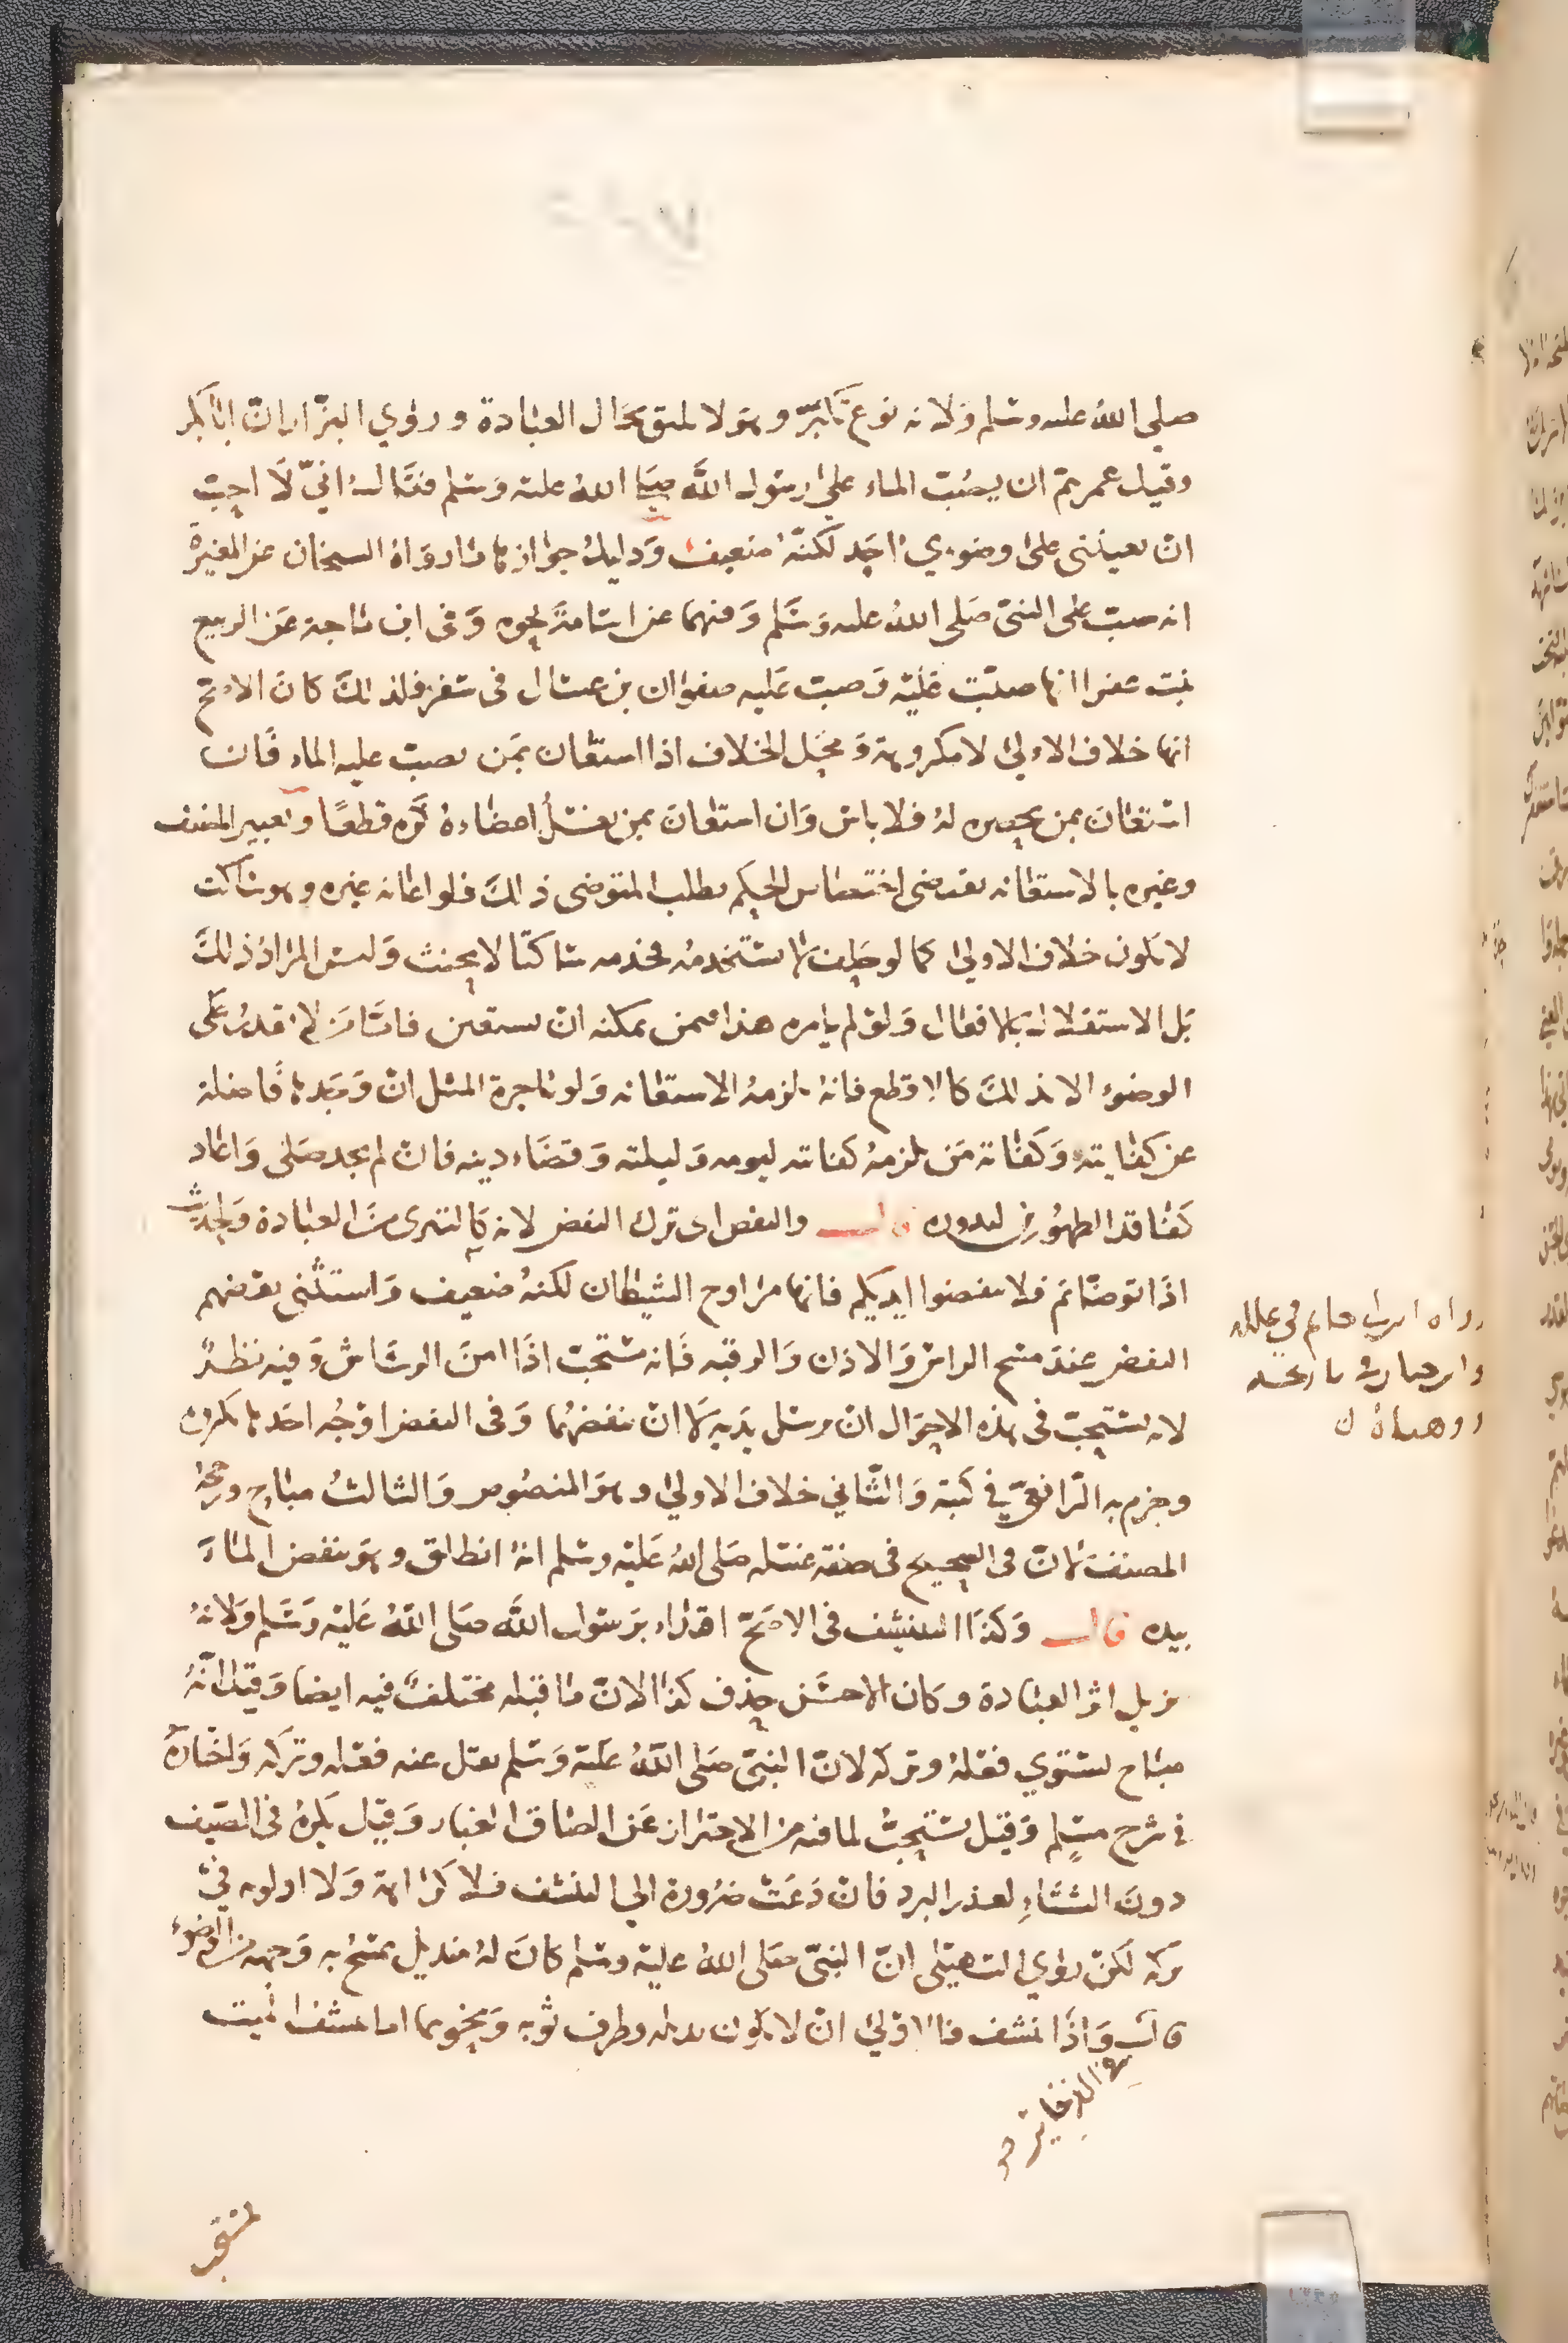 صلى الله عليه وسلم ولانه نوع تكبر وهو لا يليق بحال العبادة وروى البزار ان ابا بكر
وقيل عمر هم ان يصب الماء على رسول الله صلى الله عليه وسلم فقال له اني لا احب
ان يعينني على وضوءي احد لكنه ضعيف ودليل جوازها ما رواه الشيخان عن المغيرة
انه صب على النبي صلى الله عليه وسلم وفيهما عن اسامة نحوه وفي ابن ماجة عن الربيع
بنت عفرا انها صبت عليه وصب عليه صفوان بن عسال في سفر فلذلك كان الاصح
انها خلاف الاولى لا مكروهة ومحل الخلاف اذا استعان بمن يصب عليه الماء فان
استعان بمن يحضره له فلا باس وان استعان بمن يغسل اعضاءه كره قطعا وتعبير المصنف
وغيره بالاستعانه يقتضي اختصاص الحكم بطلب المتوضي ذلك فلو اعانه غيره وهو ساكت
لا يكون خلاف الاولى كما لو حلف لا يستخدمه فخدمه ساكتا لا يحنث وليس المراد ذلك
بل الاستقلال بالافعال ولو لم يامره هذا فيمن يمكنه ان يستعين فاما من لا يقدر على
الوضوء الا بذلك كالاقطع فانه يلزمه الاستعانه ولو باجرة المثل ان وجدها فاضلة
عن كفايته وكفاية من يلزمه كفايته ليومه وليلته وقضاء دينه فان لم يجد صلى واعاد
كفاقد الطهورين لندوره قال والنفض اي ترك النفض لانه كالتبري من العبادة ولحديث
اذا توضاتم فلا تنفضوا ايديكم فانها مراوح الشيطان لكنه ضعيف واستثنى بعضهم
النفض عند مسح الراس والاذن والرقبه فانه مستحب اذا امن الرشاش وفيه نظر
لانه يستحب في هذه الاحوال ان يرسل يديه لا ان ينفضهما وفي النفض اوجه احدها مكروه
وجزم به الرافعي في كتبه والثاني خلاف الاولى وهو المنصوص والثالث مباح ورجحه
المصنف لان في الصحيح في صفة غسله صلى الله عليه وسلم انه انطلق وهو ينفض الماء
بيده قال وكذا التنشيف في الاصح اقتداء برسول الله صلى الله عليه وسلم ولانه
يزيل اثر العبادة وكان الاحسن حذف كذا لان ما قبله مختلف فيه ايضا وقيل انه
مباح يستوي فعله وتركه لان النبي صلى الله عليه وسلم نقل عنه فعله وتركه واختاره
في شرح مسلم وقيل يستحب لما فيه من الاحتراز عن الصاق الغبار وقيل يكره في الصيف
دون الشتاء لعذر البرد فان دعت ضرورة الى التنشف فلا كراهة ولا اولوية في
تركه لكن روى البيهقي ان النبي صلى الله عليه وسلم كان له منديل يمسح به وجهه من الوضوء
قال واذا نشف فالاولى ان لا يكون بذيله وطرف ثوبه ونحوهما اما تنشف الميت
في الذخائر
رواه ابن ابي حاتم في علله
وابن حبان في تاريخه
ووهياه